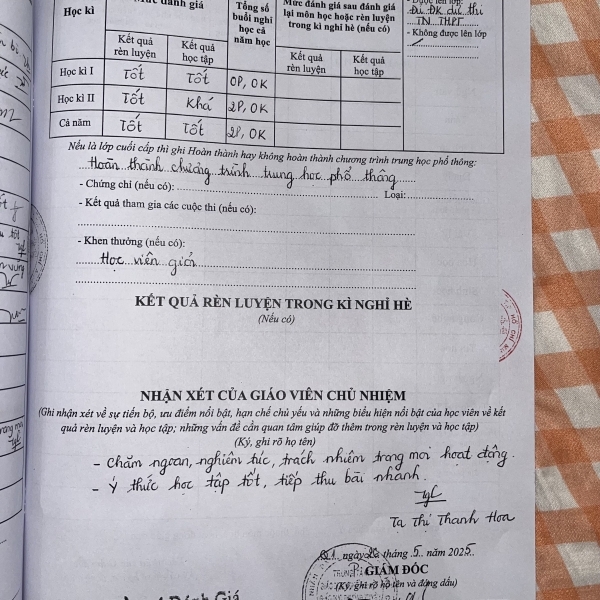 Học kì
Mức đánh giá
Tổng số buổi nghỉ học cả năm học
Mức đánh giá sau đánh giá lại môn học hoặc rèn luyện trong kì nghỉ hè (nếu có)
- Được lên lớp:
Đủ ĐK dự thi
TN THPT
- Không được lên lớp
Kết quả rèn luyện
Kết quả học tập
Kết quả rèn luyện
Kết quả học tập
Học kì I Tốt Tốt 0P, 0K
Học kì II Tốt Khá 2P, 0K
Cả năm Tốt Tốt 2P, 0K
Nếu là lớp cuối cấp thì ghi Hoàn thành hay không hoàn thành chương trình trung học phổ thông:
Hoàn thành chương trình trung học phổ thông
- Chứng chỉ (nếu có): Loại:
- Kết quả tham gia các cuộc thi (nếu có):
- Khen thưởng (nếu có):
Học viên giỏi
KẾT QUẢ RÈN LUYỆN TRONG KÌ NGHỈ HÈ
(Nếu có)
NHẬN XÉT CỦA GIÁO VIÊN CHỦ NHIỆM
(Ghi nhận xét về sự tiến bộ, ưu điểm nổi bật, hạn chế chủ yếu và những biểu hiện nổi bật của học viên về kết
quả rèn luyện và học tập; những vấn đề cần quan tâm giúp đỡ thêm trong rèn luyện và học tập)
(Ký, ghi rõ họ tên)
- Chăm ngoan, nghiêm túc, trách nhiệm trong mọi hoạt động.
- Ý thức học tập tốt, tiếp thu bài nhanh.
Tạ Thị Thanh Hoa
Q1, ngày tháng 5 năm 2025
GIÁM ĐỐC
(Ký, ghi rõ họ tên và đóng dấu)